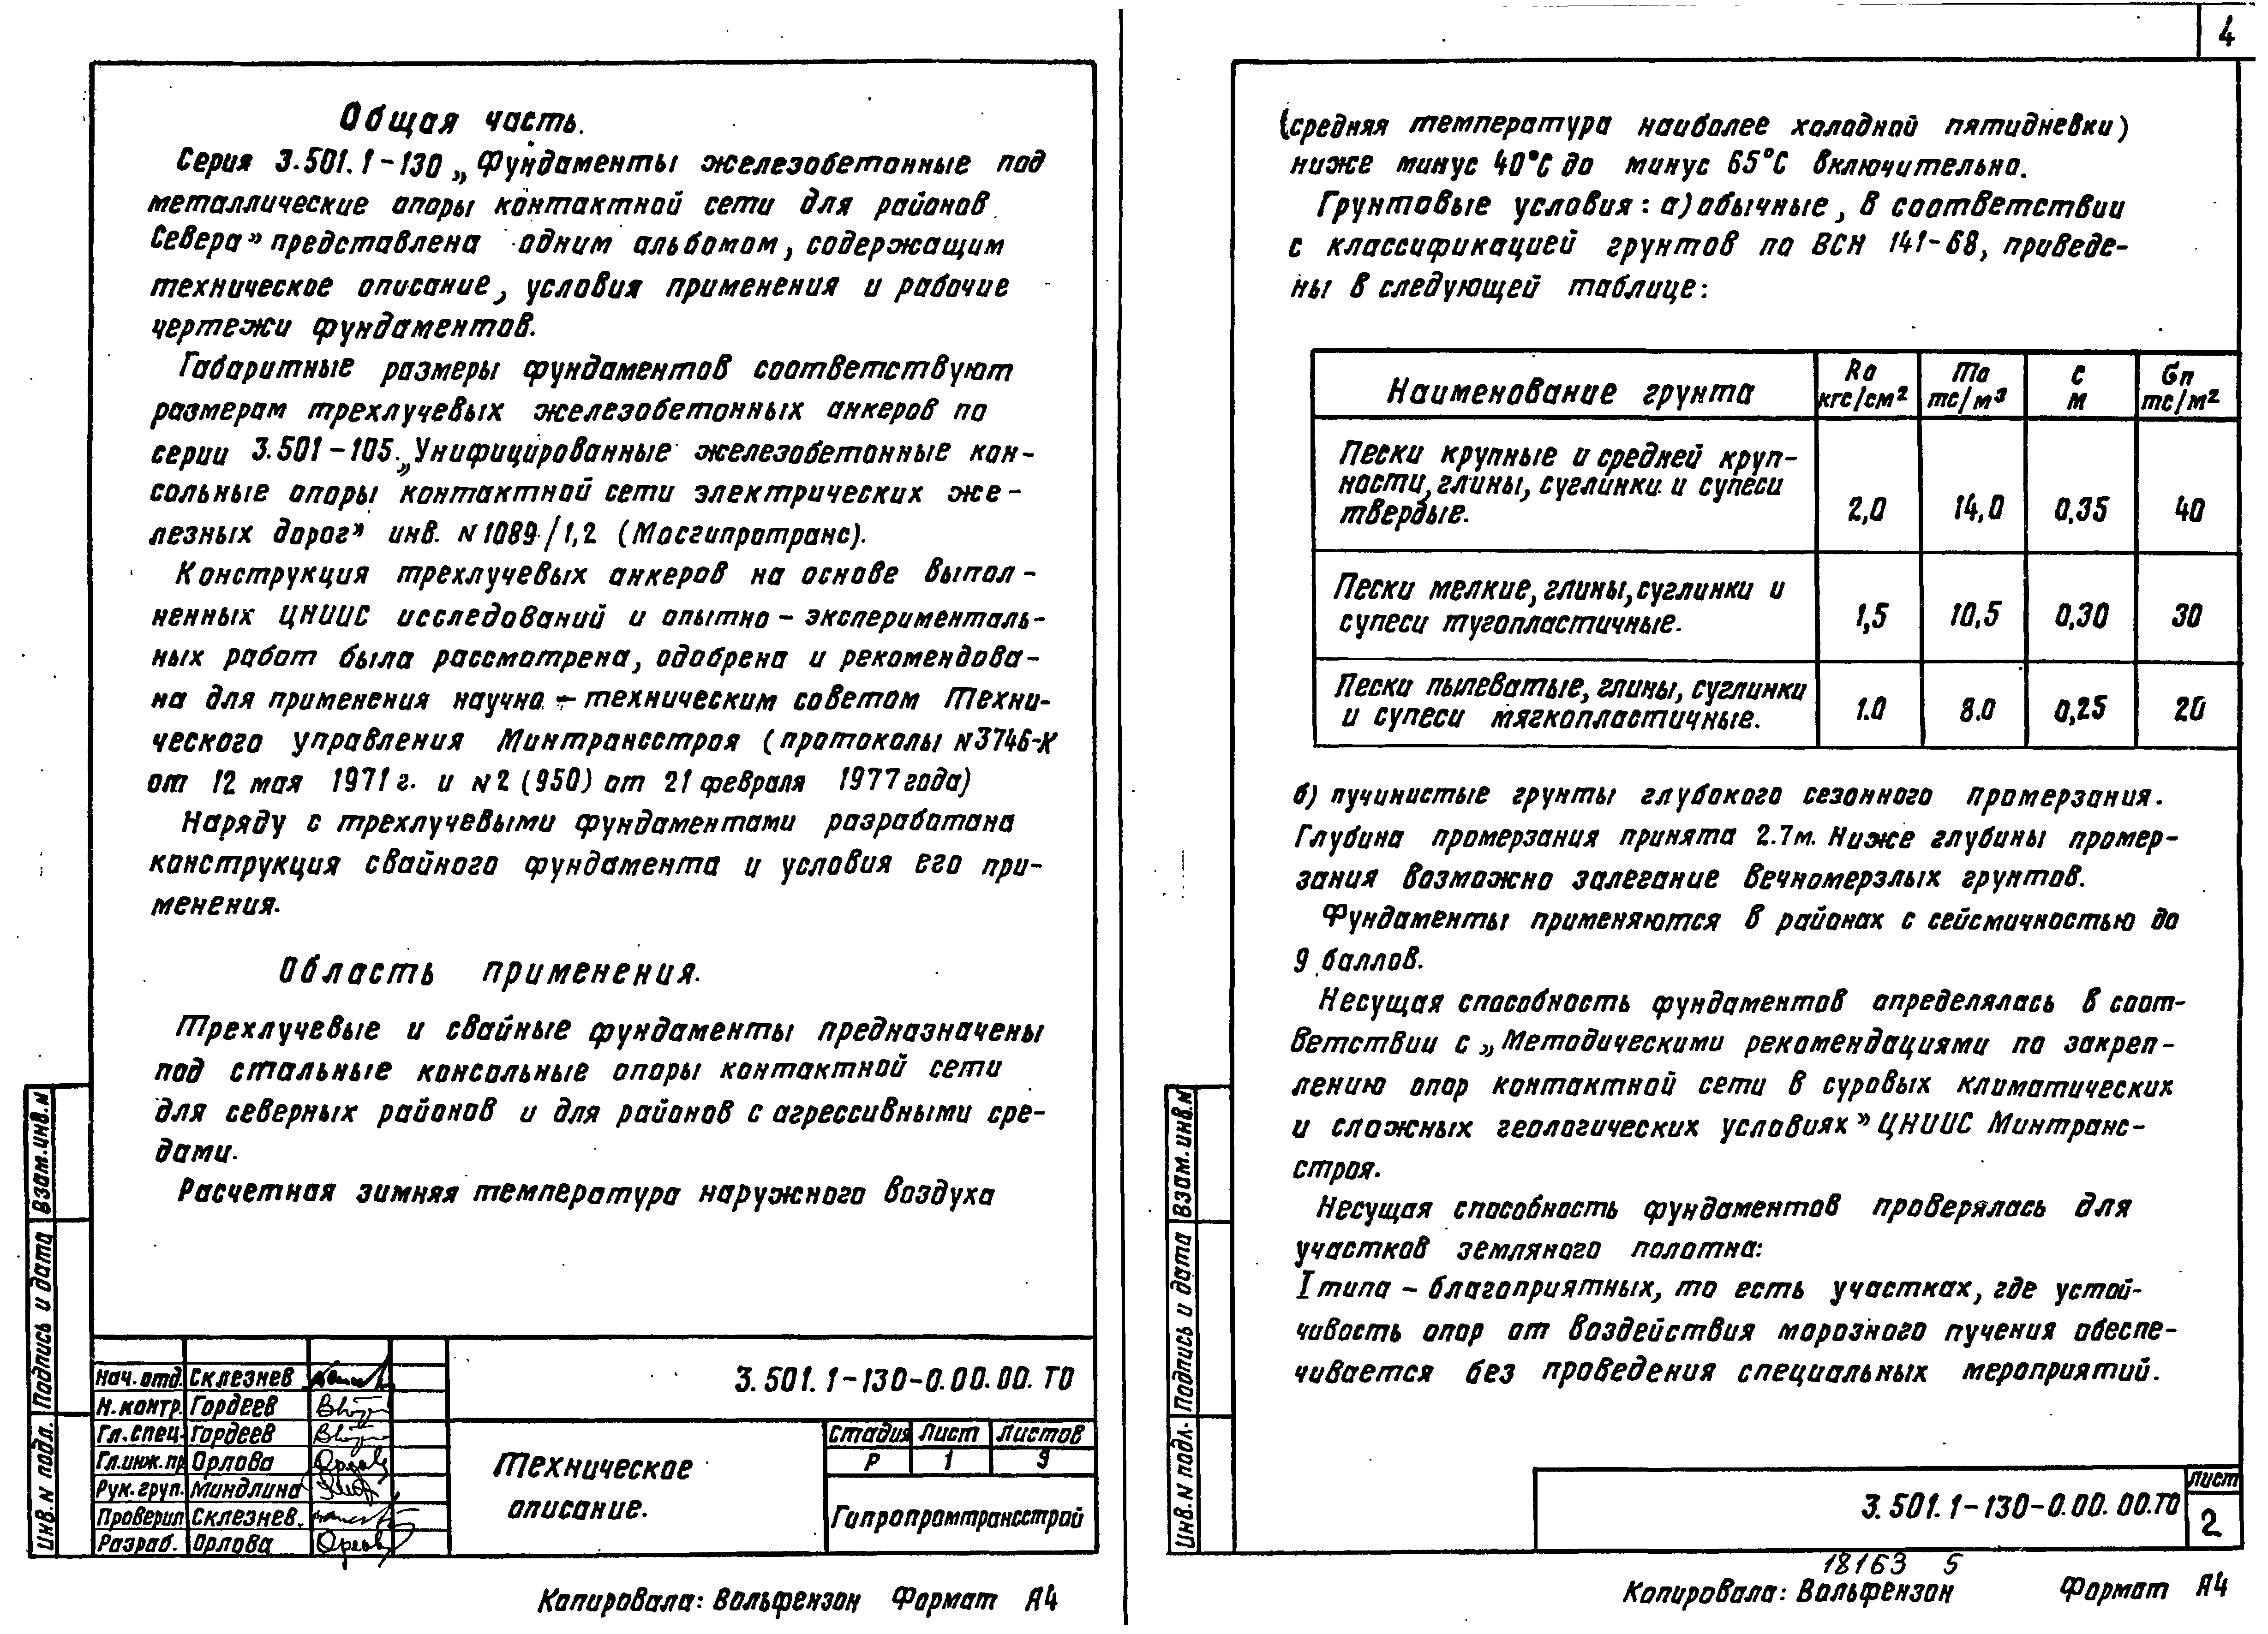 Общая часть.
Серия 3.501.1-130 „Фундаменты железобетонные под
металлические опоры контактной сети для районов
Севера” представлена одним альбомом, содержащим
техническое описание, условия применения и рабочие
чертежи фундаментов.
Габаритные размеры фундаментов соответствуют
размерам трехлучевых железобетонных анкеров по
серии 3.501-105.„Унифицированные железобетонные кон-
сольные опоры контактной сети электрических же-
лезных дорог” инв. N1089/1,2 (Мосгипротранс).
Конструкция трехлучевых анкеров на основе выпол-
ненных ЦНИИС исследований и опытно-эксперименталь-
ных работ была рассмотрена, одобрена и рекомендова-
на для применения научно-техническим советом Техни-
ческого управления Минтрансстроя (протоколы N3746-К
от 12 мая 1971г. и N2(950) от 21 февраля 1977года)
Наряду с трехлучевыми фундаментами разработана
конструкция свайного фундамента и условия его при-
менения.
Область применения.
Трехлучевые и свайные фундаменты предназначены
под стальные консольные опоры контактной сети
для северных районов и для районов с агрессивными сре-
дами.
Расчетная зимняя температура наружного воздуха
Взам.инв.N
Подпись и дата
Инв. N подл.
Нач.отд. Склезнев
Н.контр. Гордеев
Гл.спец. Гордеев
Гл.инж.пр Орлова
Рук.груп. Миндлина
Проверил Склезнев.
Разраб. Орлова
3.501.1-130-0.00.00.ТО
Техническое
описание.
Стадия Лист Листов
Р 1 9
Гипропромтрансстрой
Копировала: Вольфензон Формат А4
4
(средняя температура наиболее холодной пятидневки)
ниже минус 40°С до минус 65°С включительно.
Грунтовые условия: а) обычные, в соответствии
с классификацией грунтов по ВСН 141-68, приведе-
ны в следующей таблице:
Наименование грунта Rо кгс/см² mо тс/м³ С м Gп тс/м²
Пески крупные и средней круп-
ности, глины, суглинки и супеси
твердые. 2,0 14,0 0,35 40
Пески мелкие, глины, суглинки и
супеси тугопластичные. 1,5 10,5 0,30 30
Пески пылеватые, глины, суглинки
и супеси мягкопластичные. 1.0 8.0 0,25 20
б) пучинистые грунты глубокого сезонного промерзания.
Глубина промерзания принята 2.7м. Ниже глубины промер-
зания возможно залегание вечномерзлых грунтов.
Фундаменты применяются в районах с сейсмичностью до
9 баллов.
Несущая способность фундаментов определялась в соот-
ветствии с „Методическими рекомендациями по закреп-
лению опор контактной сети в суровых климатических
и сложных геологических условиях” ЦНИИС Минтранс-
строя.
Несущая способность фундаментов проверялась для
участков земляного полотна:
I типа - благоприятных, то есть участках, где устой-
чивость опор от воздействия морозного пучения обеспе-
чивается без проведения специальных мероприятий.
Взам.инв.N
Подпись и дата
Инв. N подл.
3.501.1-130-0.00.00.ТО
Лист
2
18163 5
Копировала: Вольфензон Формат А4